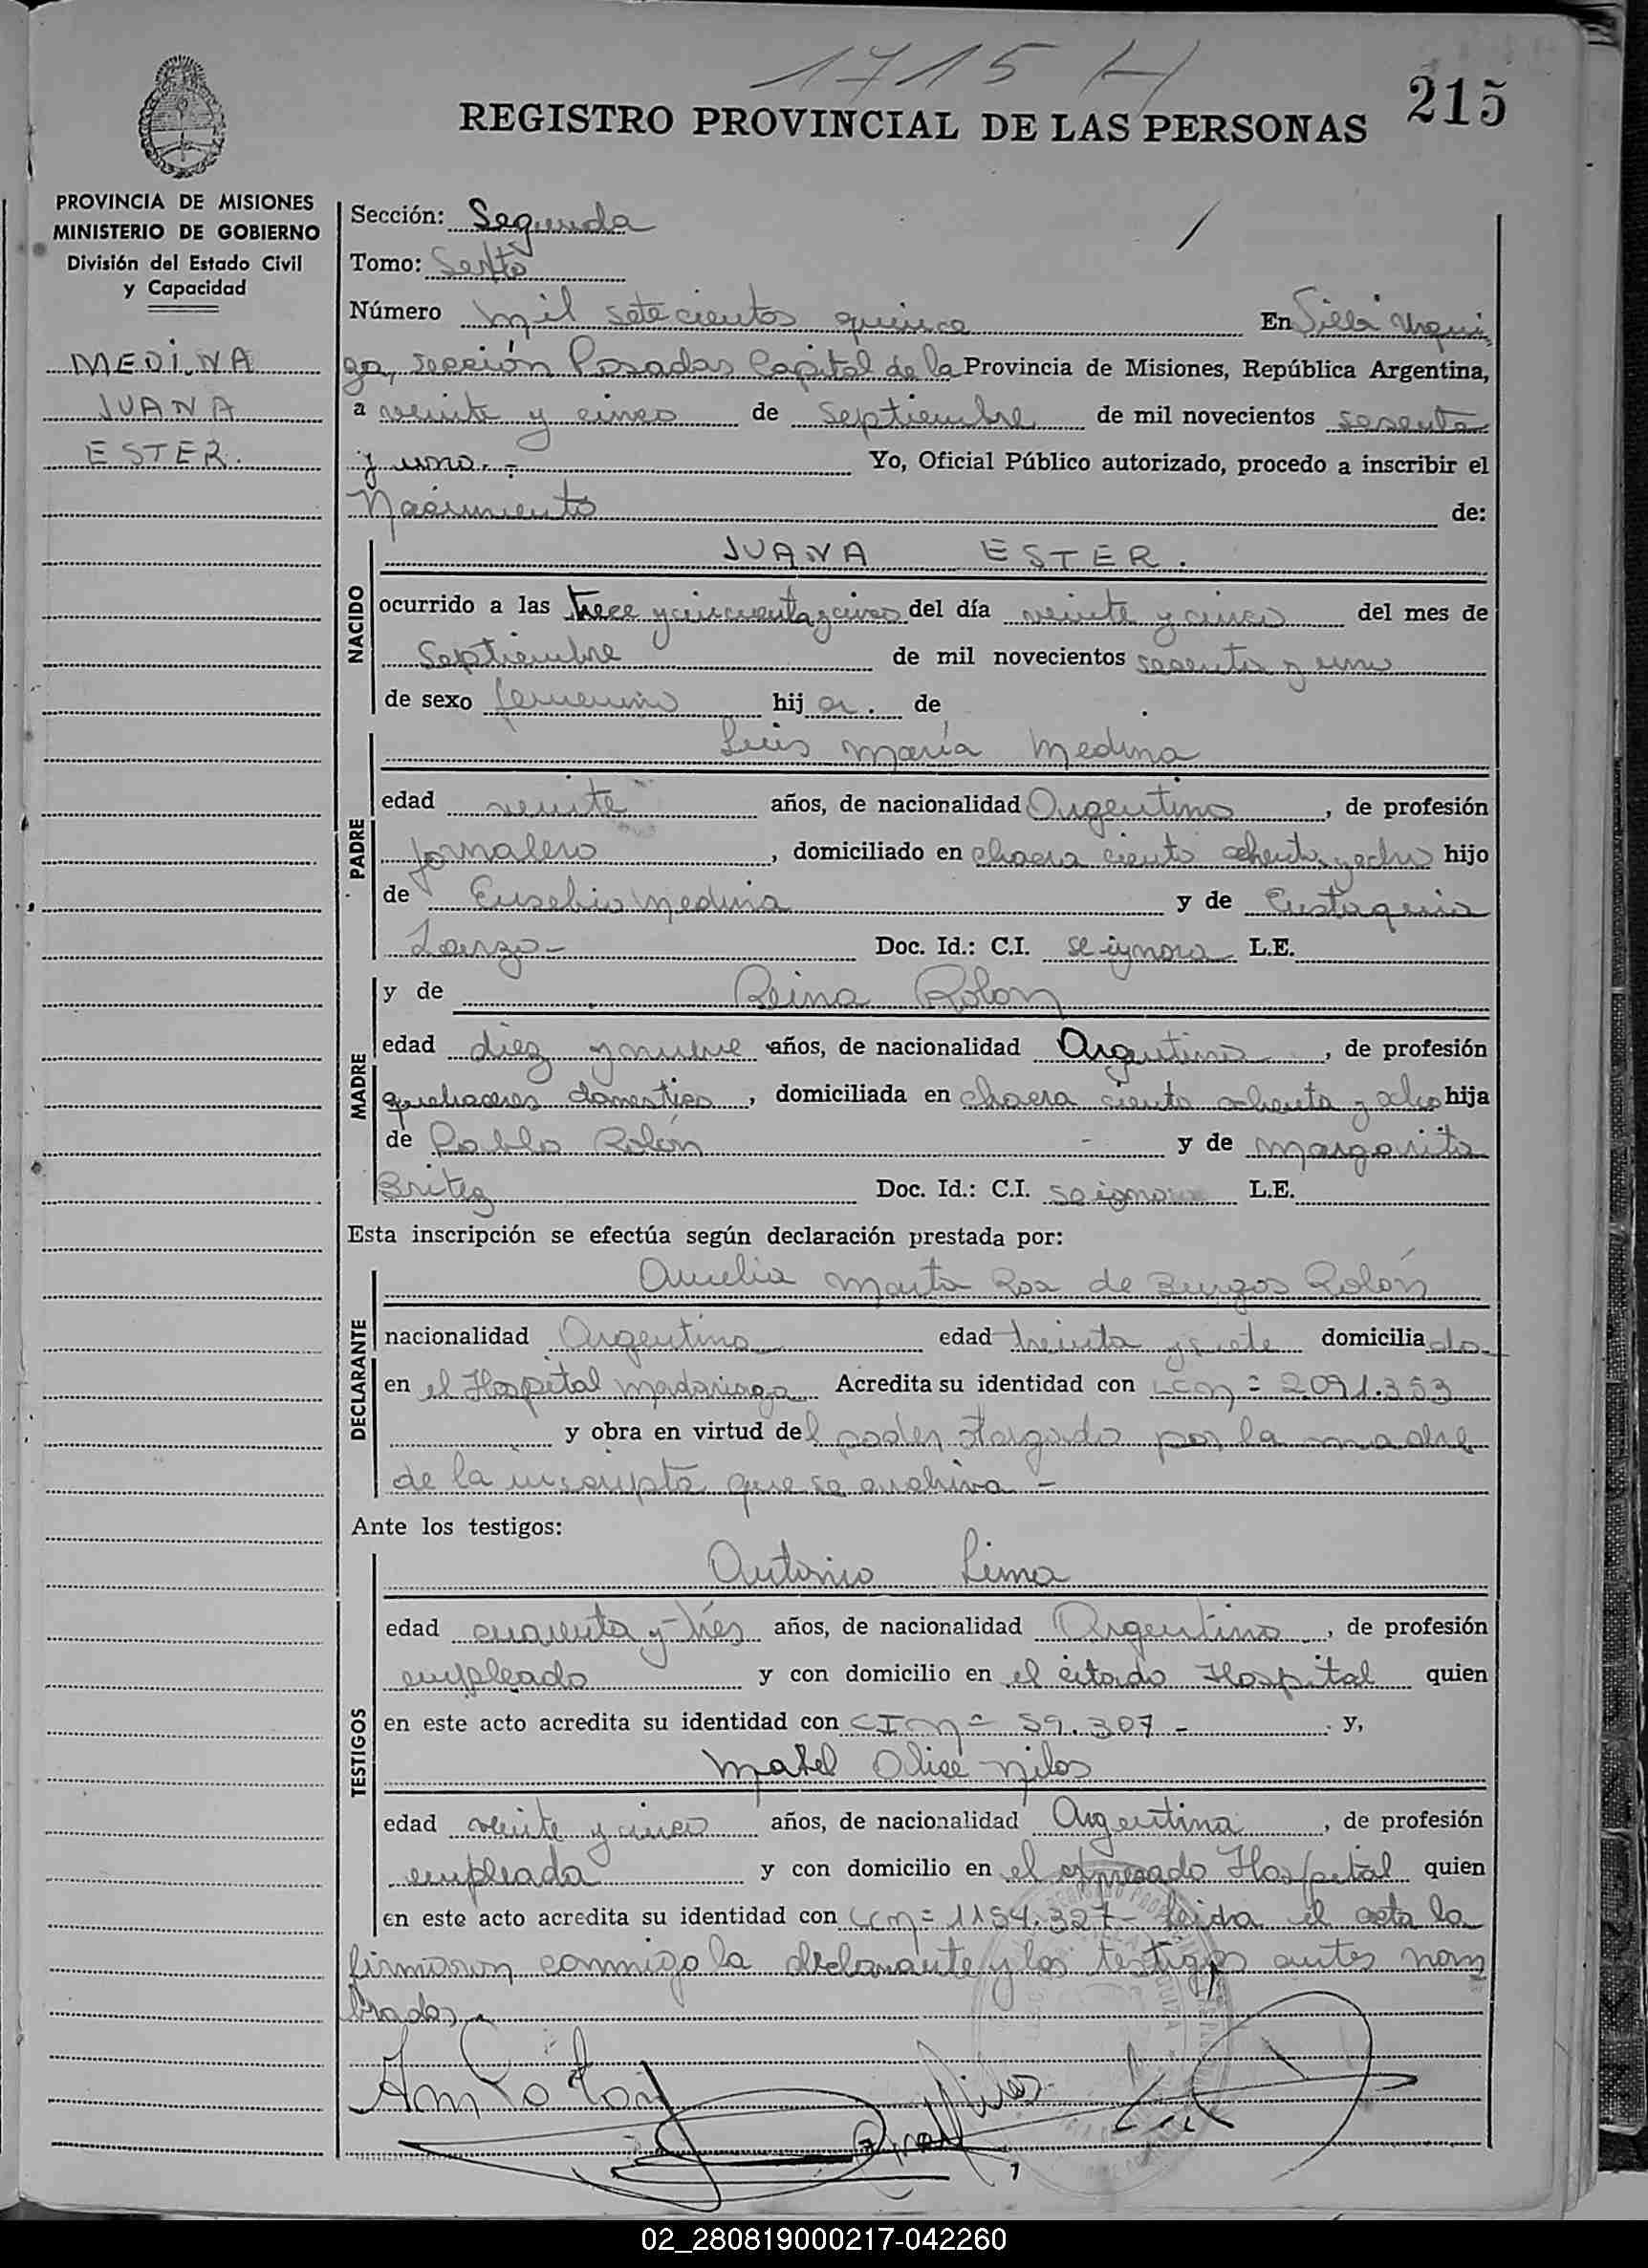 1715 H
REGISTRO PROVINCIAL DE LAS PERSONAS
215
PROVINCIA DE MISIONES
MINISTERIO DE GOBIERNO
División del Estado Civil
y Capacidad
MEDINA
JUANA
ESTER.
Sección: Segunda
Tomo: Sexto
Número mil setecientos quince En Villa Urqui
za, sección Posadas Capital de la Provincia de Misiones, República Argentina,
a veinte y cinco de Septiembre de mil novecientos sesenta
y uno.- Yo, Oficial Público autorizado, procedo a inscribir el
Nacimiento de:
NACIDO
JUANA ESTER.
ocurrido a las trece y cincuenta y cinco del día veinte y cinco del mes de
Septiembre de mil novecientos sesenta y uno
de sexo femenino hija. de
PADRE
Luis María Medina
edad veinte años, de nacionalidad Argentino, de profesión
Jornalero, domiciliado en chacra ciento ochenta y ocho hijo
de Eusebio Medina y de Eustaquia
Doc. Id.: C.I. se ignora L.E.
MADRE
y de Reina Rolon
edad diez y nueve años, de nacionalidad Argentina, de profesión
quehaceres domestico, domiciliada en chacra ciento ochenta y ocho hija
de Pablo Rolón y de Margarita
Britez Doc. Id.: C.I. se ignora L.E.
Esta inscripción se efectúa según declaración prestada por:
DECLARANTE
Amelia Marta Roa de Burgos Rolón
nacionalidad Argentina edad treinta y siete domiciliada
en el Hospital Madariaga Acredita su identidad con LC nº 2.091.353
y obra en virtud del poder otorgado por la madre
de la inscripta que se archiva -
Ante los testigos:
TESTIGOS
Antonio Lima
edad cuarenta y tres años, de nacionalidad Argentino, de profesión
empleado y con domicilio en el citado Hospital quien
en este acto acredita su identidad con CI nº 59.307 - y,
Mabel Alice Milos
edad veinte y cinco años, de nacionalidad Argentina, de profesión
empleada y con domicilio en el expresado Hospital quien
en este acto acredita su identidad con LC nº 1154.327- leida el acta la
firmaron conmigo la declarante y los testigos antes nom
brados.-
02_280819000217-042260